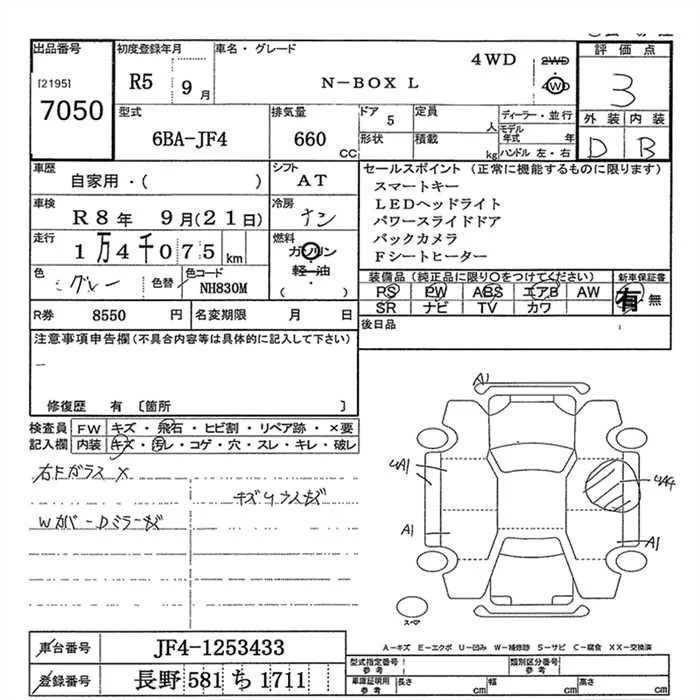 出品番号 初度登録年月 車名・グレード 評価点
[2195] 7050 R5 9月 N-BOX L 4WD 2WD 4WD 3
型式 排気量 ドア 定員 ディーラー・並行 外装 内装
6BA-JF4 660 CC 5 人 モデル年式 年 D B
形状 積載 kg ハンドル 左・右
車歴 シフト セールスポイント（正常に機能するものに限ります）
自家用・( ) AT スマートキー
車検 冷房 LEDヘッドライト
R8年 9月(21日) ナシ パワースライドドア
走行 燃料 バックカメラ
1万4千075km ガソリン 軽油 ( ) Fシートヒーター
色 色替 色コード 装備品（純正品に限り○をつけてください） 新車保証書
グレー NH830M PS PW ABS エアB AW 有 無
SR ナビ TV カワ
R券 8550 円 名変期限 月 日 後日品
注意事項申告欄(不具合内容等は具体的に記入して下さい)
－
修復歴 有 〔箇所 〕
検査員 FW キズ・飛石・ヒビ割・リペア跡・×要
記入欄 内装 キズ・汚レ・コゲ・穴・スレ・キレ・破レ
A1
右Fガラス X
4A1 4A4
キズ
Wカバー Dミラーキズ
A1 A1
スペア
車台番号 JF4-1253433
A-キズ E-エクボ U-凹み W-補修跡 S-サビ C-腐食 XX-交換済
型式指定番号 参考 類別区分番号 参考
登録番号 長野 581 ち 1711
車庫証明用 参考 長さ cm 幅 cm 高さ cm